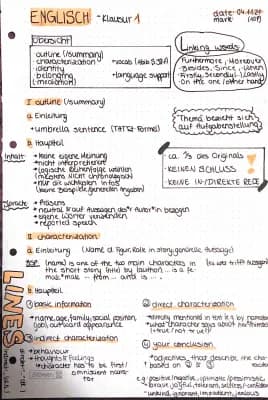 ENGLISCH - Klausur 1
date: 04.11.21
mark:
Übersicht
outline (/summary)
characterization
identity
belonging
(narration)
• vocab
• language support
Linking words
Furthermore, Moreover
Besides, Since, Given
Firstly, Secondly, Lastly
On the one/other hand
I outline (/summary)
a. Einleitung
• umbrella sentence (TATTS-Formel)
Thema bezieht sich
auf Aufgabenstellung
b. Hauptteil
Inhalt:
• keine eigene Meinung
• nicht interpretieren
• logische Reihenfolge wählen
(meistens nicht umändern)
• nur die wichtigsten Infos
(keine Beispiele, generellen Angaben)
ca. 1/3 des Originals
KEINEN SCHLUSS
KEINE IN/DIREKTE REDE
!
Sprache:
• Präsens
• neutral & auf Aussagen des*r Autor*in bezogen
• eigene Wörter verwenden
• reported speech
II characterization
a. Einleitung (Name d. Figur, Rolle in story, generelle Aussage)
BSP. (name) is one of the two main characters in
the short story (title) by (author)... is a fe
male*male ... from ... and is ...
b. Hauptteil
① basic information
• name, age, family, social position,
(job), outward appearance
② direct characterization
• directly mentioned in text (e.g. by narrator)
• what character says about him*herself
(true/not true?)
③ indirect characterization
• behaviour
• thoughts & feelings
• character has to be first/
omniscient narra-
tor
④ your conclusion
• adjectives, that describe the cha-
based on ② & ③
e.g. positive/negative, optimistic/pessimistic
brave, joyful, tolerant, selfless/confident
unkind, ignorant, impatient, jealous
LINES